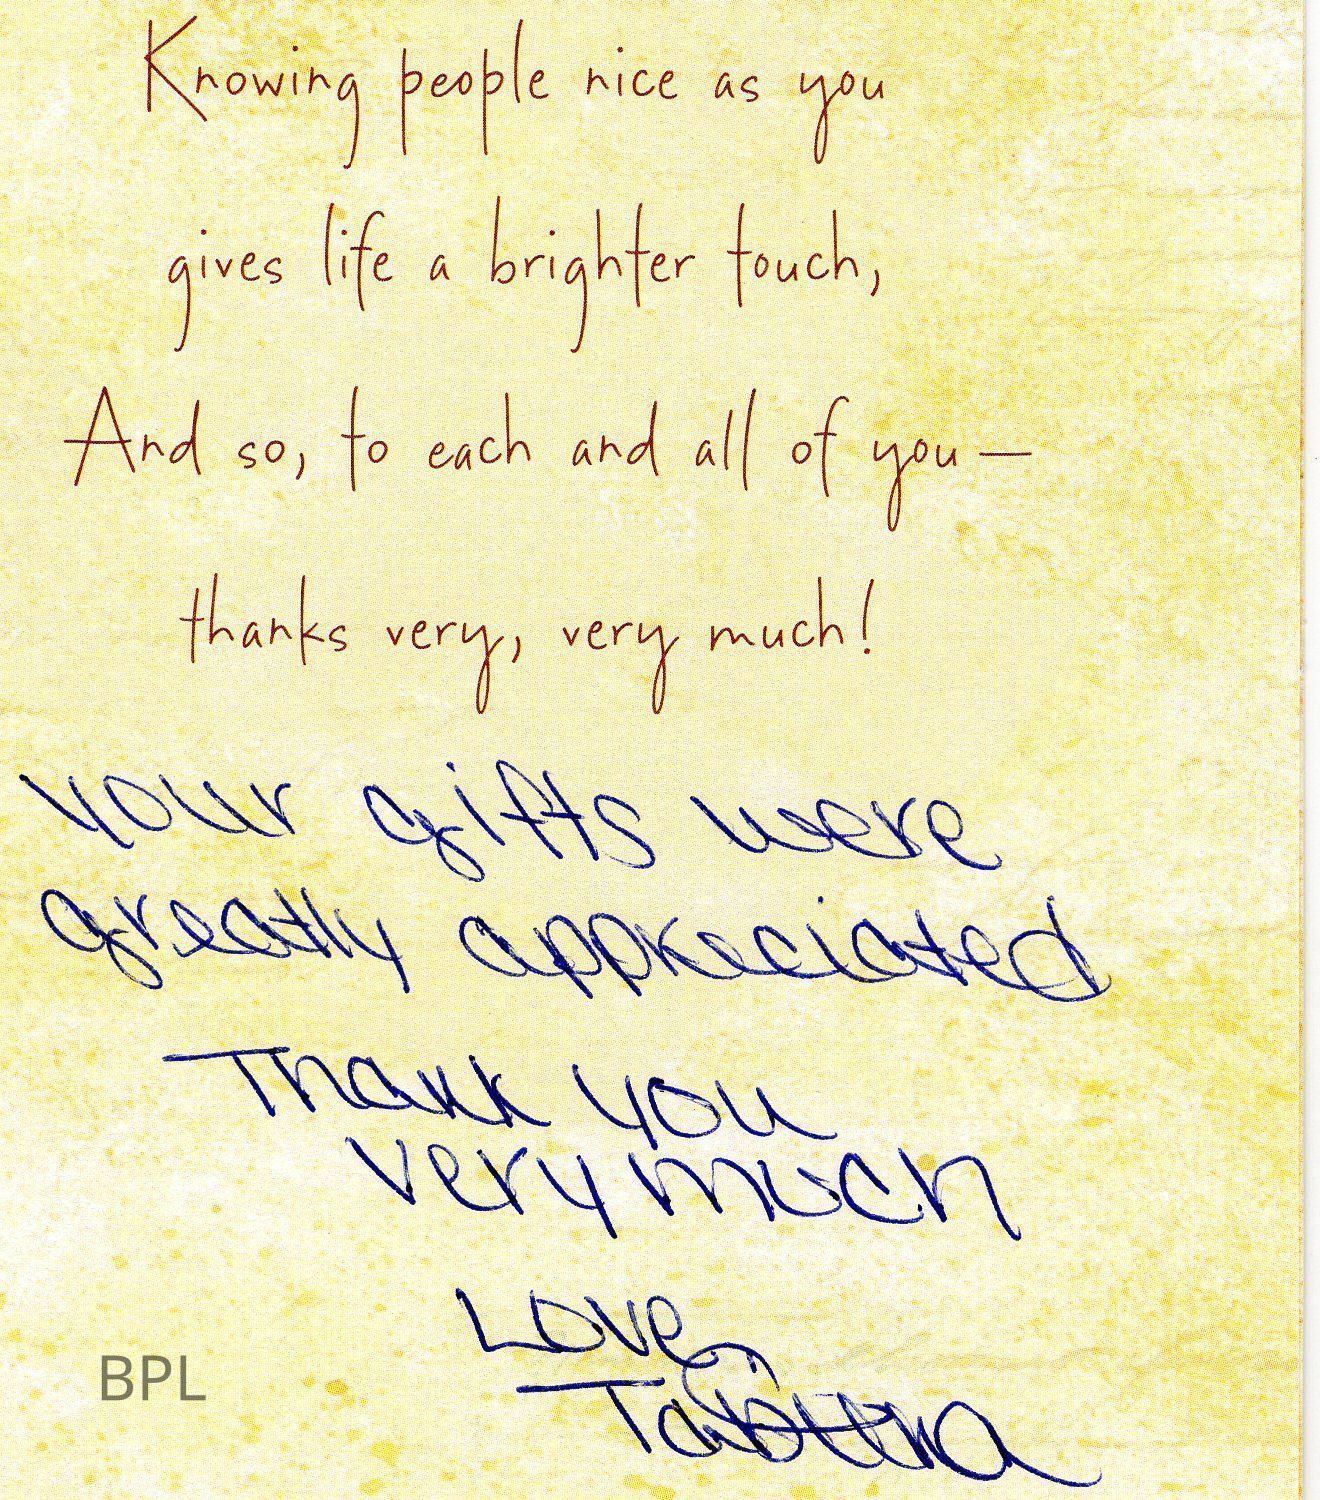 Knowing people nice as you
gives life a brighter touch,
And so, to each and all of you—
thanks very, very much!
your gifts were
greatly appreciated
Thank you
very much
Love,
Tabitha
BPL